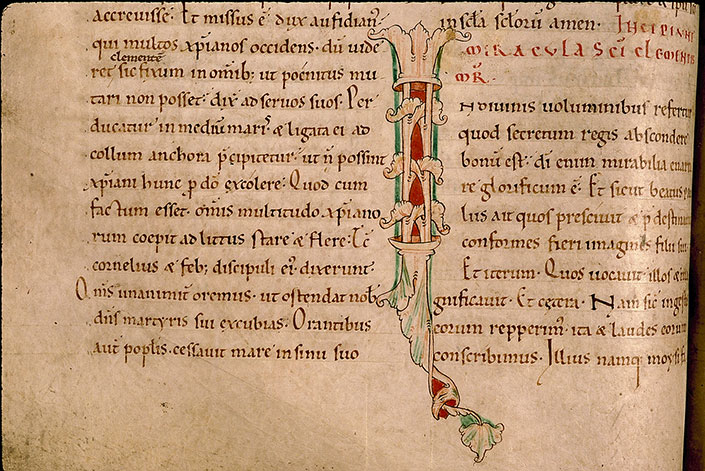 accrevisse. Et missus ē dux aufidian᷒
qui multos xp̄ianos occidens. dū vide
clementē
ret sic fixum in omīb; ut poenitus mu
tari non posset. dix̄ ad servos suos. Per
ducatur in mediū mari᷒ & ligata ei ad
collum anchora p̄cipitetur. ut ñ possint
xp̄iani hunc p̄ dō excolere. Quod cum
factum esset. om̄is multitudo xp̄iano
rum coepit ad littus stare & flere. Tc̄
cornelius & feb; discipuli ei᷒ dixerunt.
Om̄s unanimit̄ oremus. ut ostendat nob᷒
dn̄s martyris sui exuvias. Orantibus
aut̄ pop̄lis. cessavit mare in sinu suo
in scła scłorū amen. INCIPIUNT
MIRACULA SC̄I CLEMENTIS
MR̄.
IN divinis voluminibus refertur
quod secretum regis abscondere
bonū est. dī enim mirabilia enarra
re glorificum ē. Et sicut beatus
lus ait quos prescivit & p̄destina
conformes fieri imagines filii sui
Et iterum. Quos vocavit. illos &
gnificavit. Et cetera. Nam sic
eorum repperim᷒. ita & laudes eorum
conscribimus. Illius namq; moysi